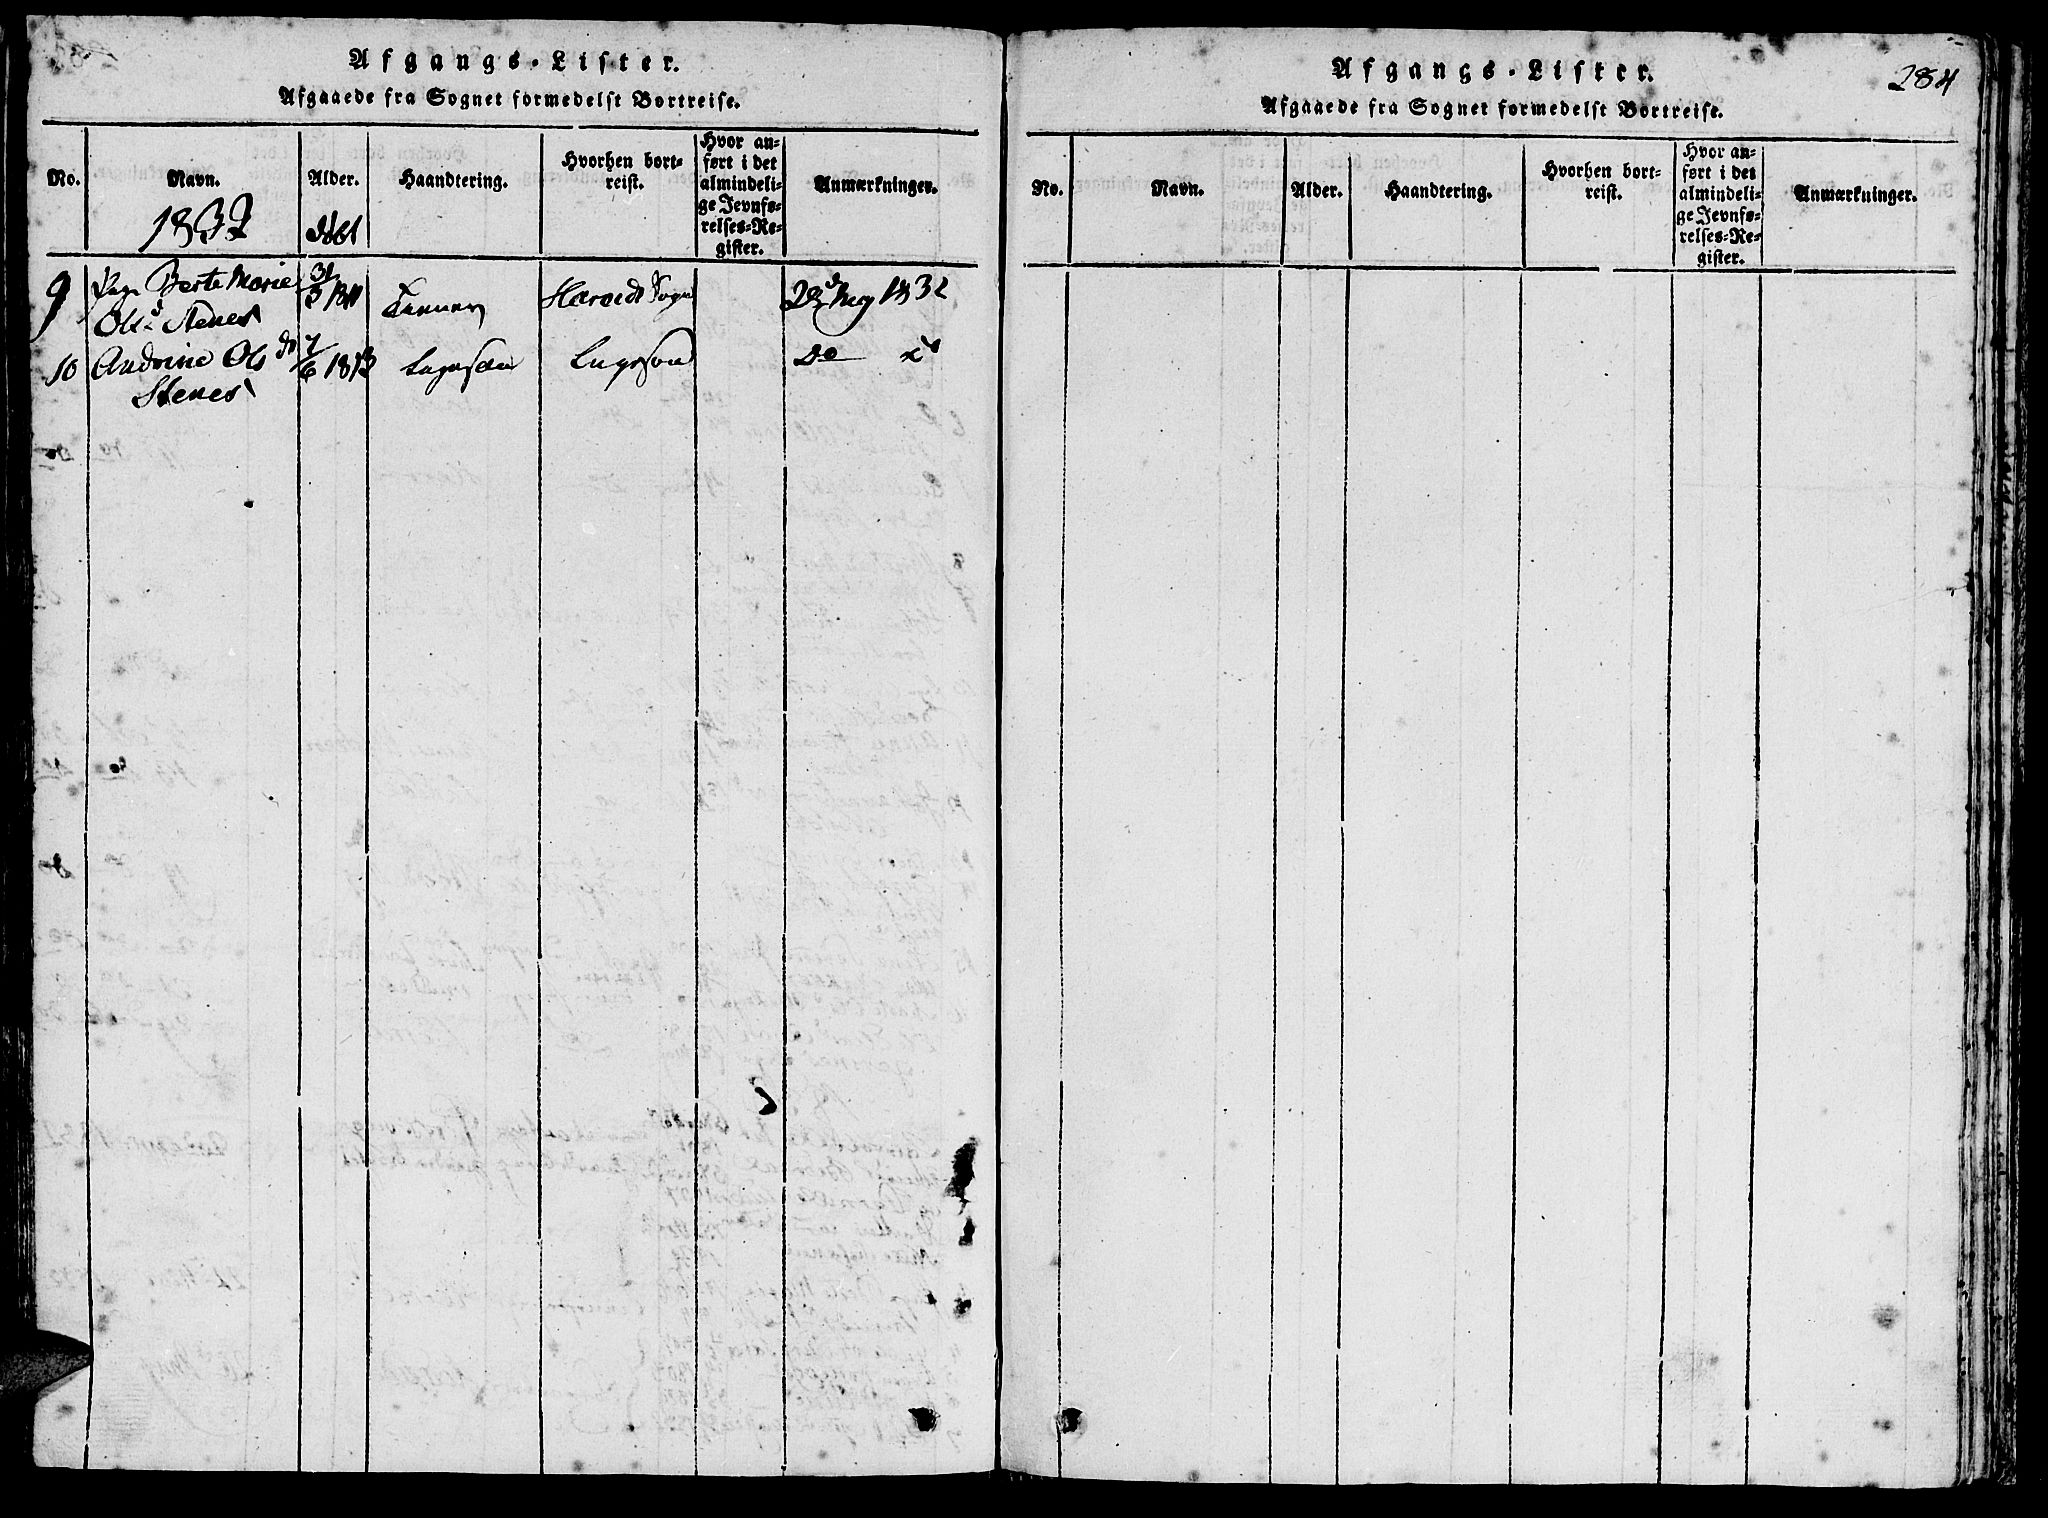 Afgangs-Lister.
Afgaaede fra Sognet formedelst Bortreise.
No.
Navn.
1832
Alder.
Haandtering.
Hvorhen bort-
reist.
Hvor an-
ført i det
almindeli-
ge Jevnfø-
relses-Re-
gister.
Anmærkninger.
9 Pige Berte Marie 31/3 1811 Haroids Sogn 1832
Ols Stenes
10 Andrine Ols 7/6 1813 Do
Stenes
284
Afgangs-Lister.
Afgaaede fra Sognet formedelst Bortreise.
No.
Navn.
Alder.
Haandtering.
Hvorhen bort-
reist.
Hvor an-
ført i det
almindeli-
ge Jevnfø-
relses-Re-
gister.
Anmærkninger.